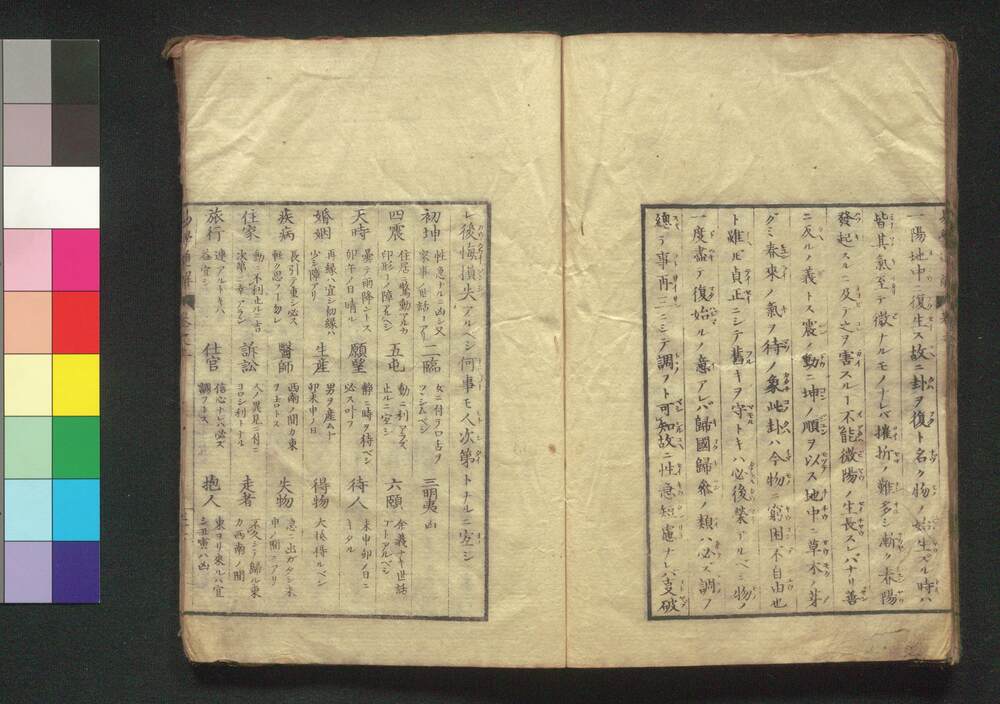 一陽地中ニ復生ス故ニ卦ヲ復ト名ク物ノ始生スル時ハ
皆其氣至テ微ナルモノナレバ摧折ノ難多シ漸ク春陽
發起スルニ及テ之ヲ害スル不能微陽ノ生長スレバナリ善
ニ反ルノ義トス震ノ動ニ坤ノ順ヲ以ス地中ニ草木ノ芽
グミ春來ノ氣ヲ待ノ象此卦ハ今物ニ窮困不自由也
ト雖ヒ貞正ニシテ舊キヲ守トキハ必後榮ナルベシ物ノ
一度盡テ復始ルノ意アレバ歸國歸參ノ類ハ必ズ調フ
總テ事再三ニシテ調フト可知故ニ性急短慮ナレバ支破
レ後悔損失アルベシ何事モ人次第トナルニ宜シ
初坤 性急ナルニ凶シ又
家事ノ世話一アリ
二臨 女ニ付テ口舌ヲ
ツヽシムベシ
三明夷 凶
四震 住居ノ驚動アルカ
印形一ノ障アルベシ
五屯 動ニ利アラズ
止ルニ宜シ
六頤 外義ナキ世話
ゴトアルベシ
天時 曇テ雨降ントス
卯午ノ日晴ル
願望 靜ニ時ヲ待ベシ
必ス叶フ
待人 未申卯ノ日ニ
キタル
婚姻 再縁ニ宜シ初縁ハ
少シ障アリ
生産 男ヲ産ム
卯未申ノ日
得物 大体得ルベシ
疾病 長引ノ重シ必ス
軽ク思フ勿レ
醫師 西南ノ間カ東
ヲ上トス
失物 急ニ出ガタシ未
申ノ間ニアリ
住家 動ニ不利止ルニ吉
次第ニ幸アラン
訴訟 人ノ異見ニ付ニ
ヨロシ利トナル
走者 不久シテ歸ル東
カ西南ノ間
旅行 連アルトキハ
各宜シ
仕官 信心ナレハ必ズ
調フトス
抱人 東ヨリ來ルハ宜
シ丑寅ハ凶